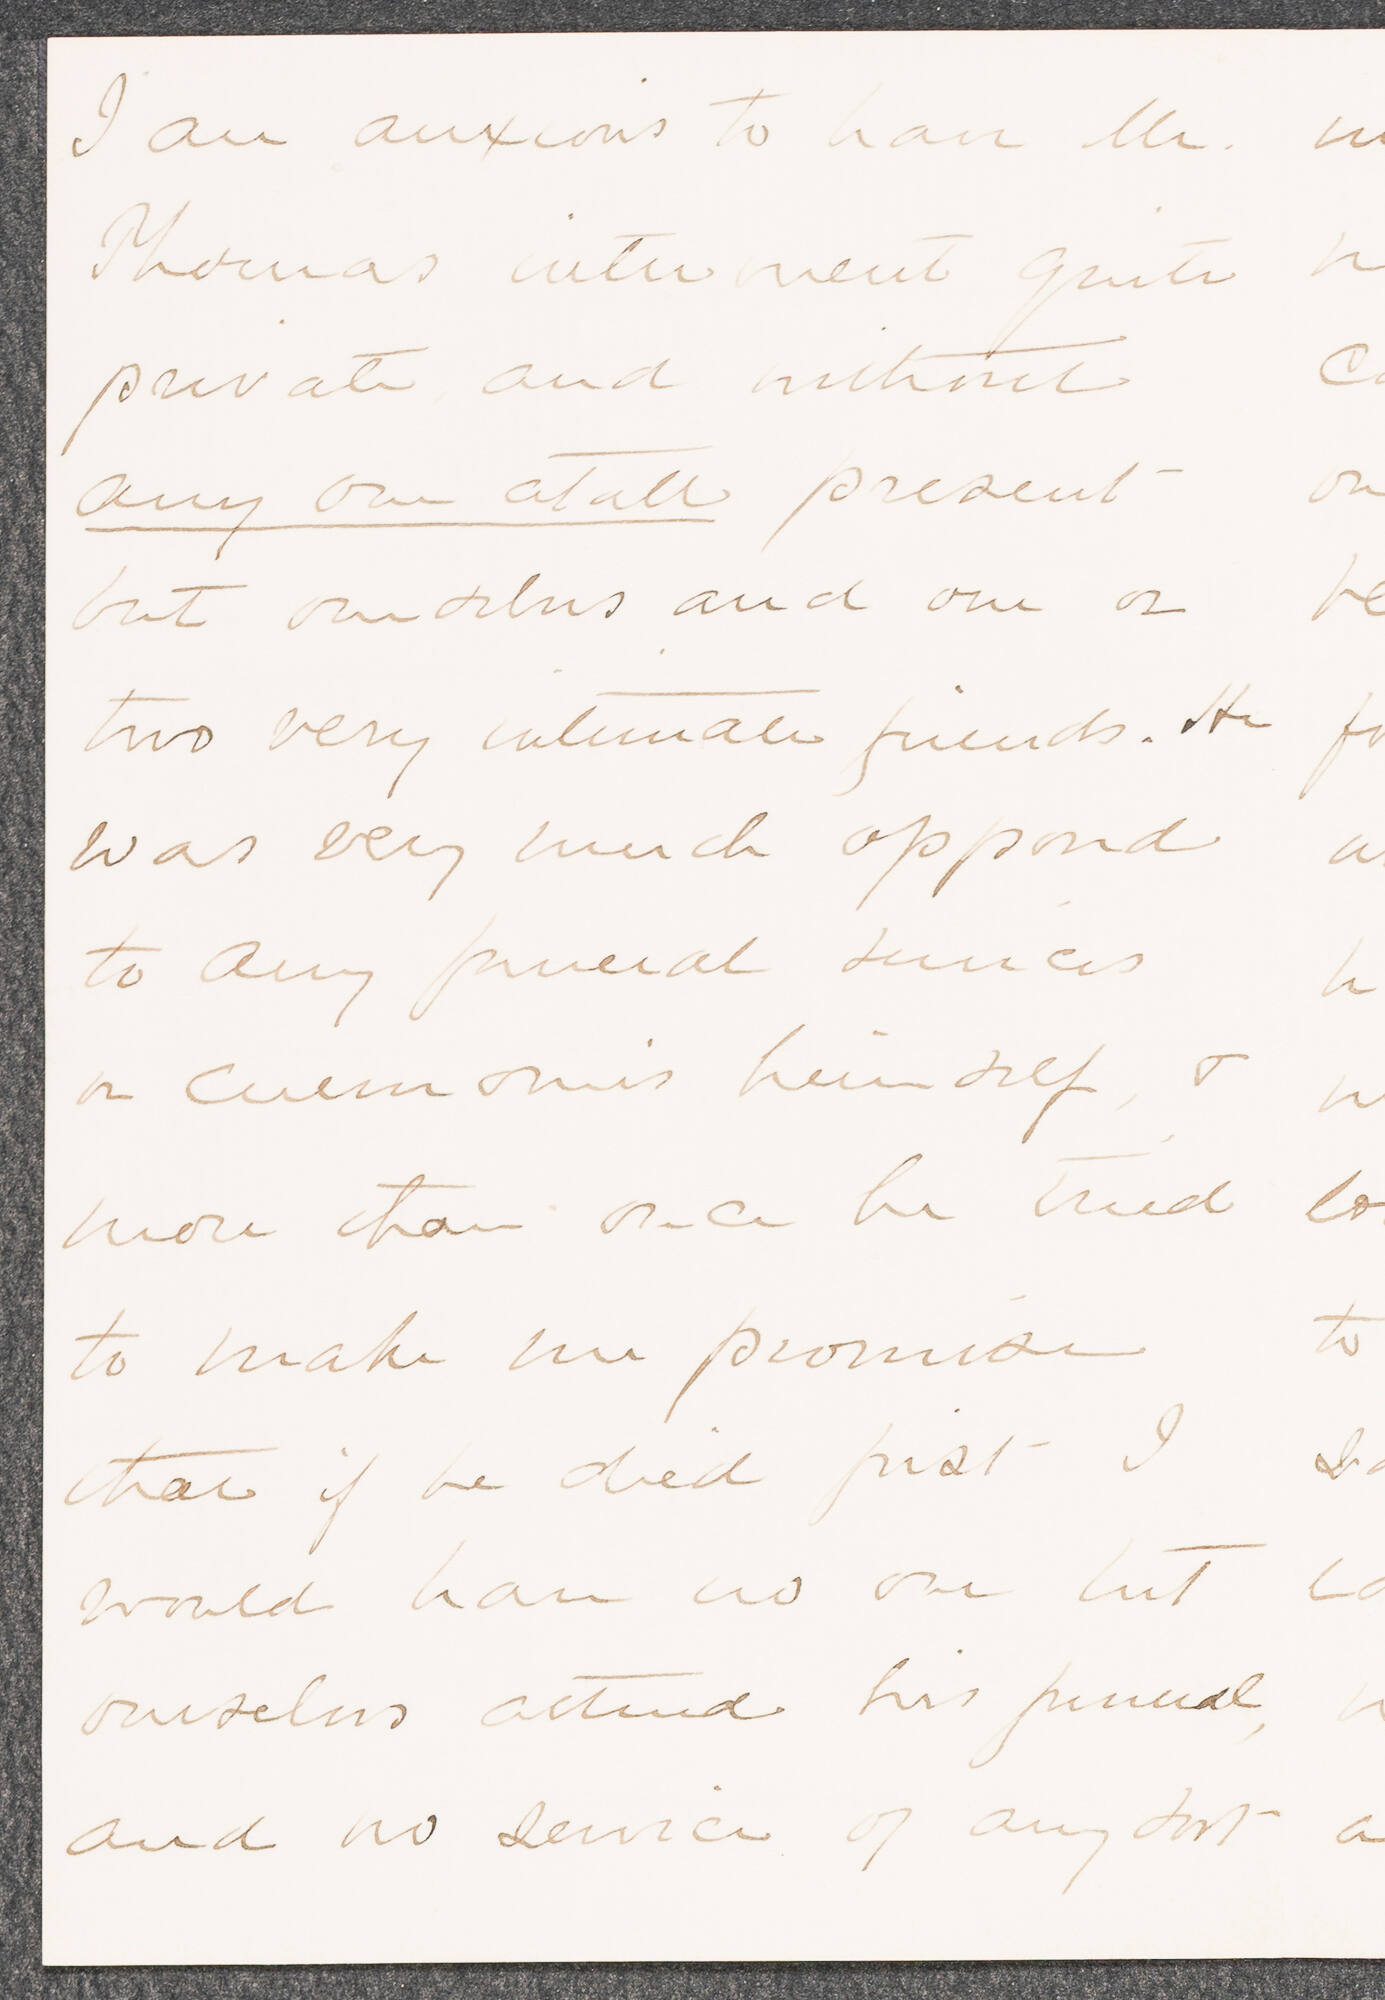 I am anxious to have Mr.
Thomas interment quite
private and without
any one atall present
but ourselves and one or
two very intimate friends. He
was very much opposed
to any funeral services
or ceremonies heimself, &
more than once he tried
to make me promise
that if he died first I
would have no one but
ourselves attend his funeral,
and no service of any sort